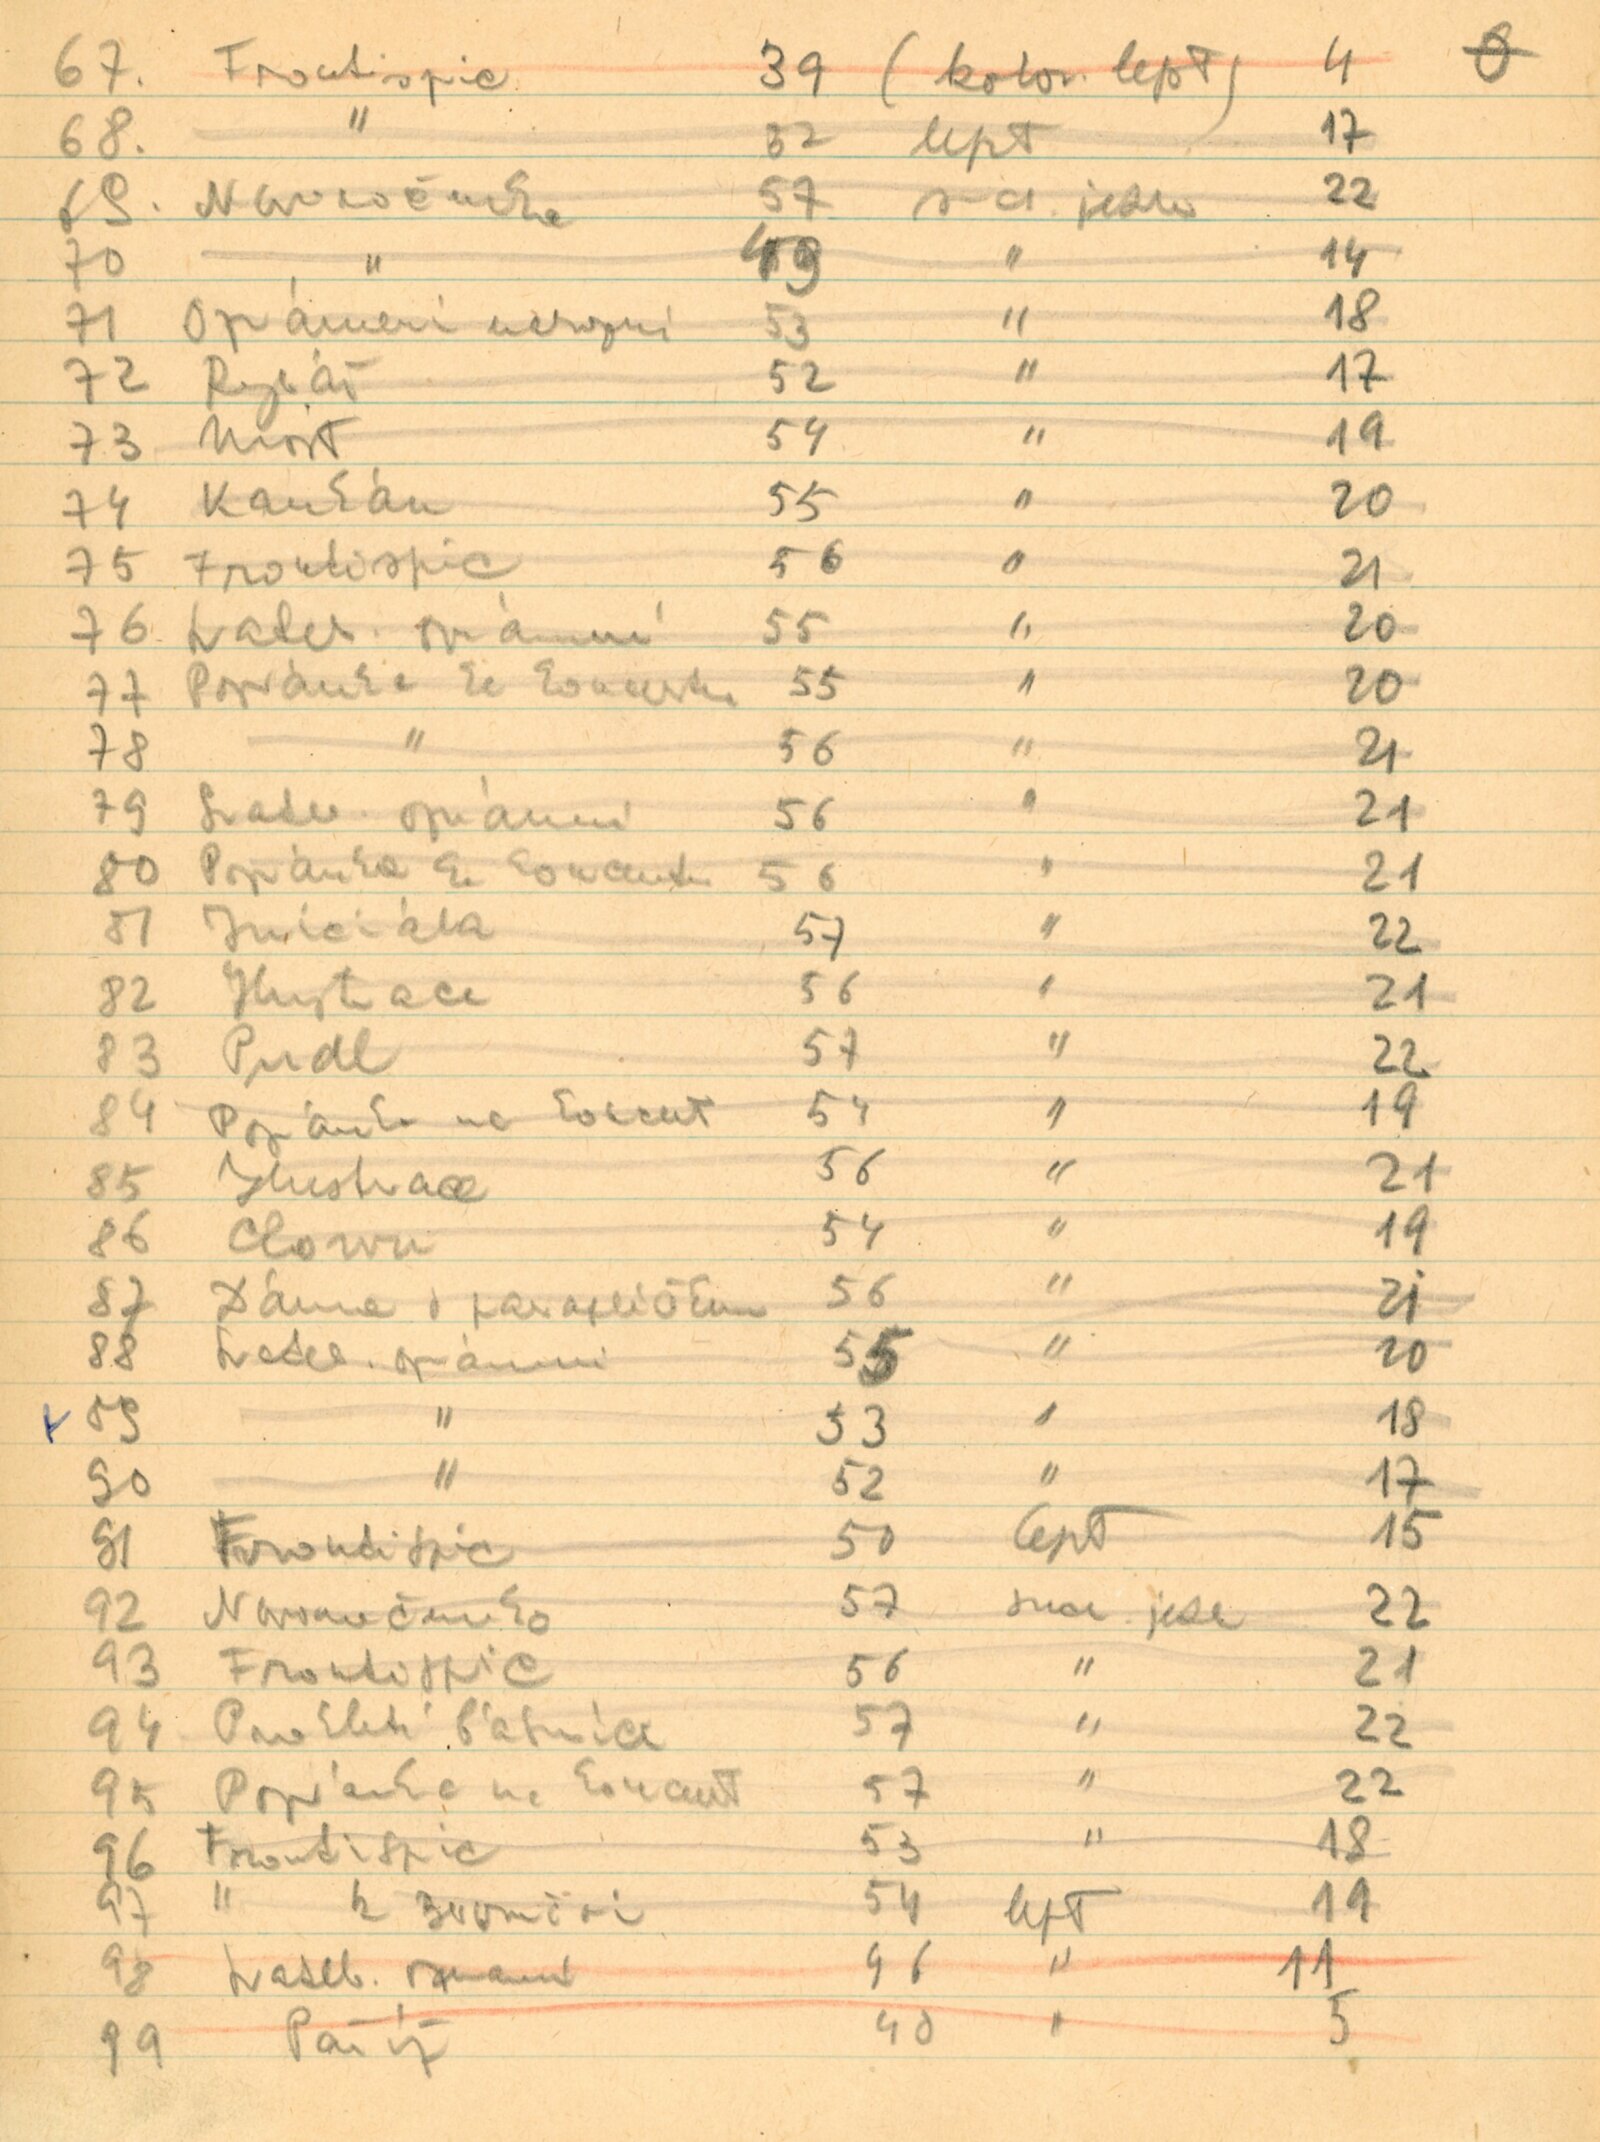 67. Frontispic 39 (kolor. lept) 4 0
68. " 32 lept 17
69. Novoročenka 57 s-cl. jehla 22
70 " 49 " 14
71 Oznámení narození 53 " 18
72 Rybář 52 " 17
73 Most 54 " 19
74 Kankán 55 " 20
75 Frontispic 56 " 21
76 Svateb. oznámení 55 " 20
77 Pozvánka ke koncertu 55 " 20
78 " 56 " 21
79 Svateb. oznámení 56 " 21
80 Pozvánka ke koncertu 56 " 21
81 Iniciála 57 " 22
82 Ilustrace 56 " 21
83 Pudl 57 " 22
84 Pozvánka na koncert 54 " 19
85 Ilustrace 56 " 21
86 Clown 54 " 19
87 Dáma s paraplíčkem 56 " 21
88 Svateb. oznámení 55 " 20
89 " 53 " 18
90 " 52 " 17
91 Frontispic 50 lept 15
92 Novoročenka 57 such. jehl 22
93 Frontispic 56 " 21
94 Prokletí básníci 57 " 22
95 Pozvánka na koncert 57 " 22
96 Frontispic 53 " 18
97 " k 54 lept 19
98 Svateb. oznámení 46 " 11
99 Paříž 40 " 5